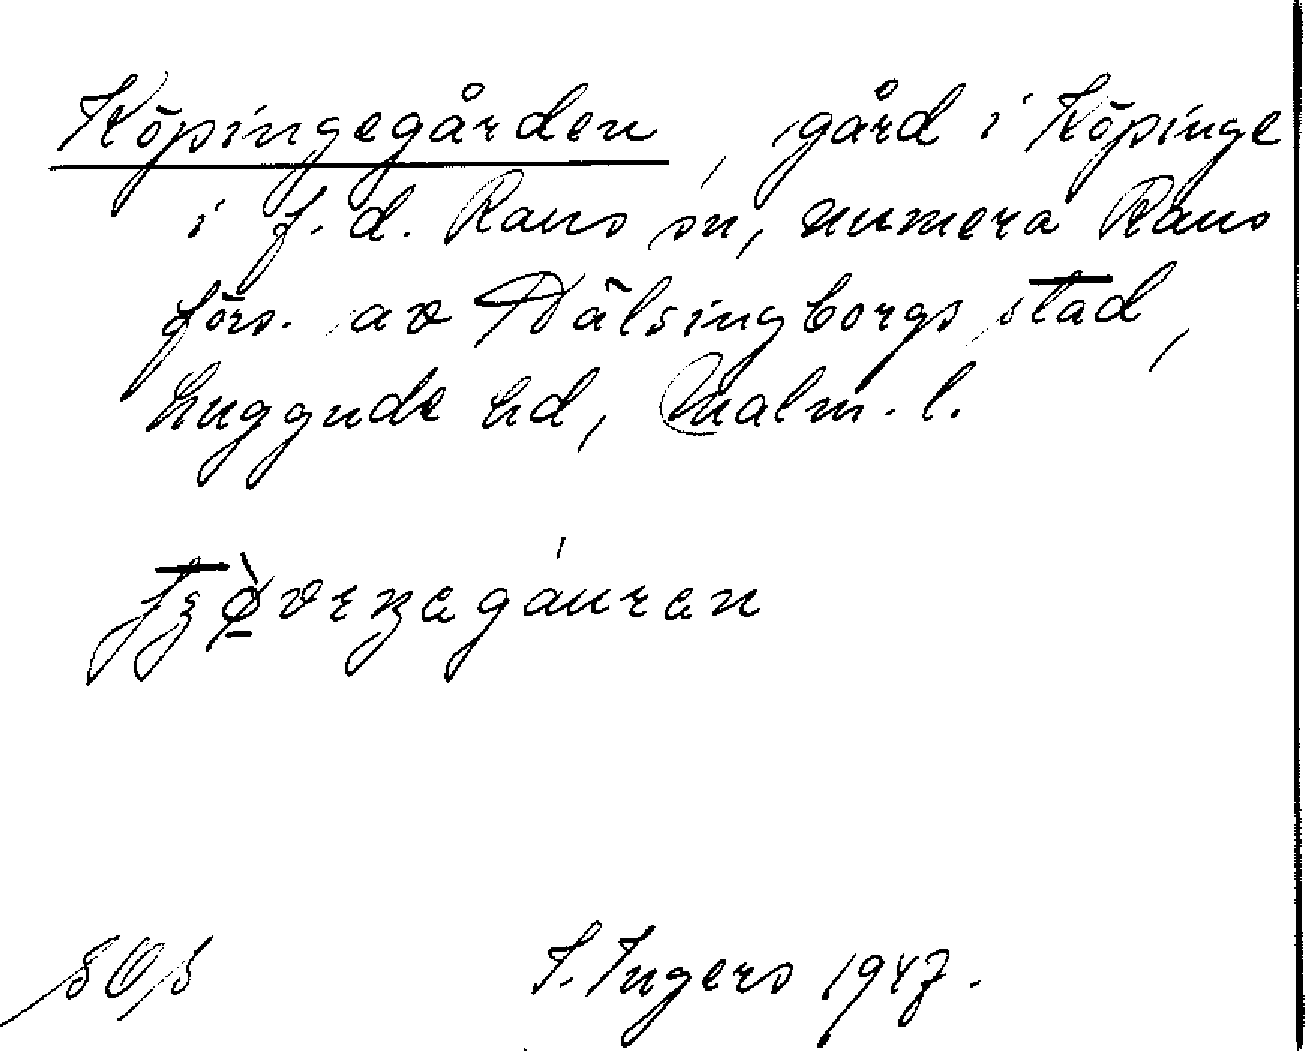 Köpingegården, gård i Köpinge
i f.d. Raus sn, numera Raus
förs. av Hälsingborgs stad,
Luggude hd, Malm. l.
I. Ingers 1947.